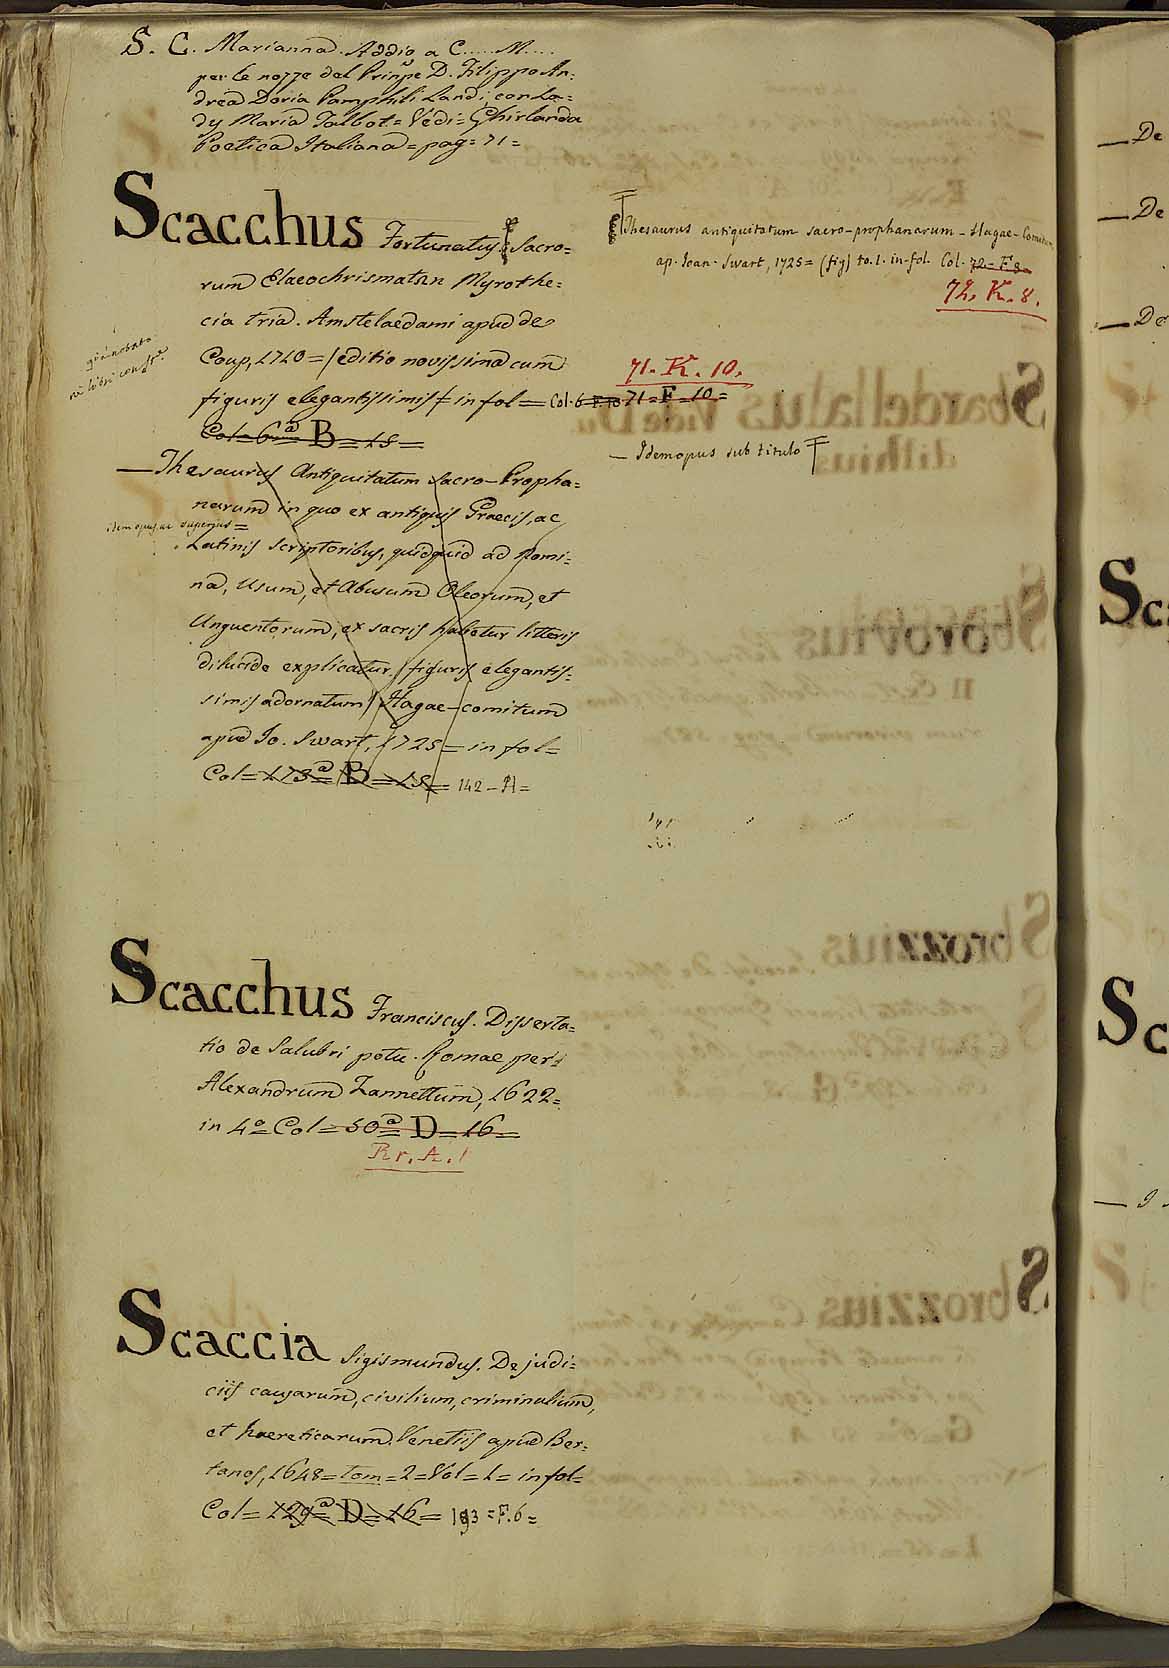 S. C. Marianna. Addio a C..... M....
per le nozze del Prinpe D. Filippo An=
drea Doria Pamphili Landi, con La=
dy Maria Talbot = Vedi = Ghirlanda
Poetica Italiana = pag = 71 =
Scacchus Fortunatus. Sacro=
rum Elaeochrismatan Myrothe=
cia tria. Amstelaedami apud de
Coup, 1710 = / editio novissima cum
figuris elegantissimis / = in fol = Col. 6 F. 10 71 = F = 10 =
Col = 6ª B = 15 =
già notato
— Thesaurus Antiquitatum Sacro-Propha=
narum in quo ex antiquis Graecis, ac
idem opus, ac superius =
Latinis scriptoribus, quidquid ad nomi=
na, usum, et abusum Oleorum, et
Unguentorum, ex sacris habetur litteris
dilucide explicatur / figuris elegantis=
simis adornatum / Hagae-comitum
apud Jo. Swart, 1725 = in fol =
Col = 173ª B = 15 = 142 - A =
Thesaurus antiquitatum sacro-prophanarum - Hagae-Comitum
ap. Ioan. Swart, 1725 = (fig) to. 1. in-fol. Col. 72 = F 8 =
72. K. 8.
71. K. 10.
— Idem opus sub titulo
Scacchus Franciscus. Disserta=
tio de Salubri potu. Romae per
Alexandrum Zannettum, 1622 =
in 4º Col = 50ª D = 16 =
Rr. A. 1
Scaccia Sigismundus. De judi=
ciis causarum, civilium, criminalium,
et haereticarum. Venetiis apud Ber=
tanos, 1648 = Tom = 2 = Vol = 1 = in fol =
Col = 129ª D = 16 = 193 = F. 6 =
— De
— De
— De
Sc
Sc